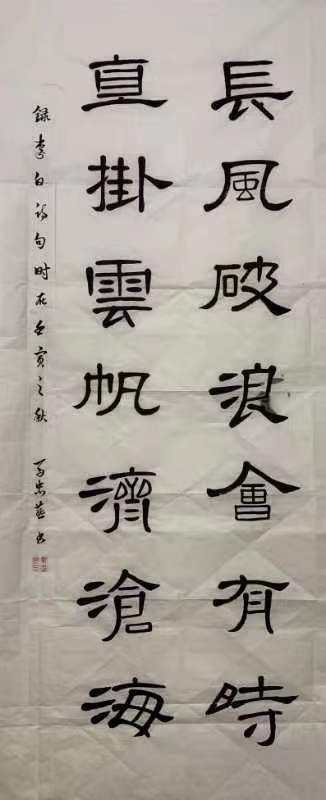 長風破浪會有時
直掛雲帆濟滄海
録李白诗句时在壬寅之秋
書